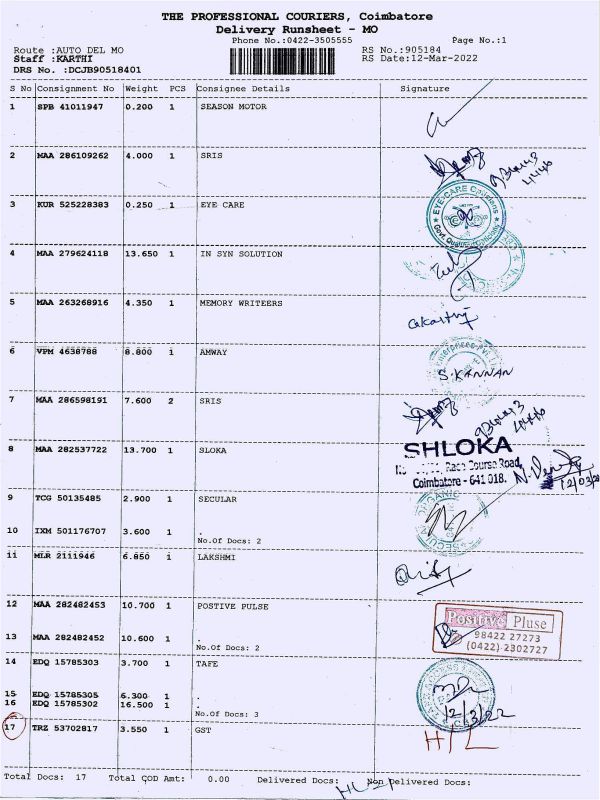 THE PROFESSIONAL COURIERS, Coimbatore
Delivery Runsheet - MO
Phone No.:0422-3505555 Page No.:1
Route :AUTO DEL MO RS No.:905184
Staff :KARTHI RS Date:12-Mar-2022
DRS No. :DCJB90518401
S No Consignment No Weight PCS Consignee Details Signature
1 SPB 41011947 0.200 1 SEASON MOTOR
2 MAA 286109262 4.000 1 SRIS
3 KUR 525228383 0.250 1 EYE CARE
EYE-CARE
4 MAA 279624118 13.650 1 IN SYN SOLUTION
5 MAA 263268916 4.350 1 MEMORY WRITEERS
6 VPM 4638788 8.800 1 AMWAY
S. KANNAN
7 MAA 286598191 7.600 2 SRIS
8 MAA 282537722 13.700 1 SLOKA
SHLOKA
Race Course Road,
Coimbatore - 641 018.
9 TCG 50135485 2.900 1 SECULAR
10 IXM 501176707 3.600 1 .
No.Of Docs: 2
11 MLR 2111946 6.850 1 LAKSHMI
12 MAA 282482453 10.700 1 POSTIVE PULSE
Positive Pluse
98422 27273
(0422) 2302727
13 MAA 282482452 10.600 1 .
No.Of Docs: 2
14 EDQ 15785303 3.700 1 TAFE
15 EDQ 15785305 6.300 1 .
16 EDQ 15785302 16.500 1 .
No.Of Docs: 3
12/3/22
17 TRZ 53702817 3.550 1 GST
H/L
Total Docs: 17 Total COD Amt: 0.00 Delivered Docs: Non Delivered Docs: